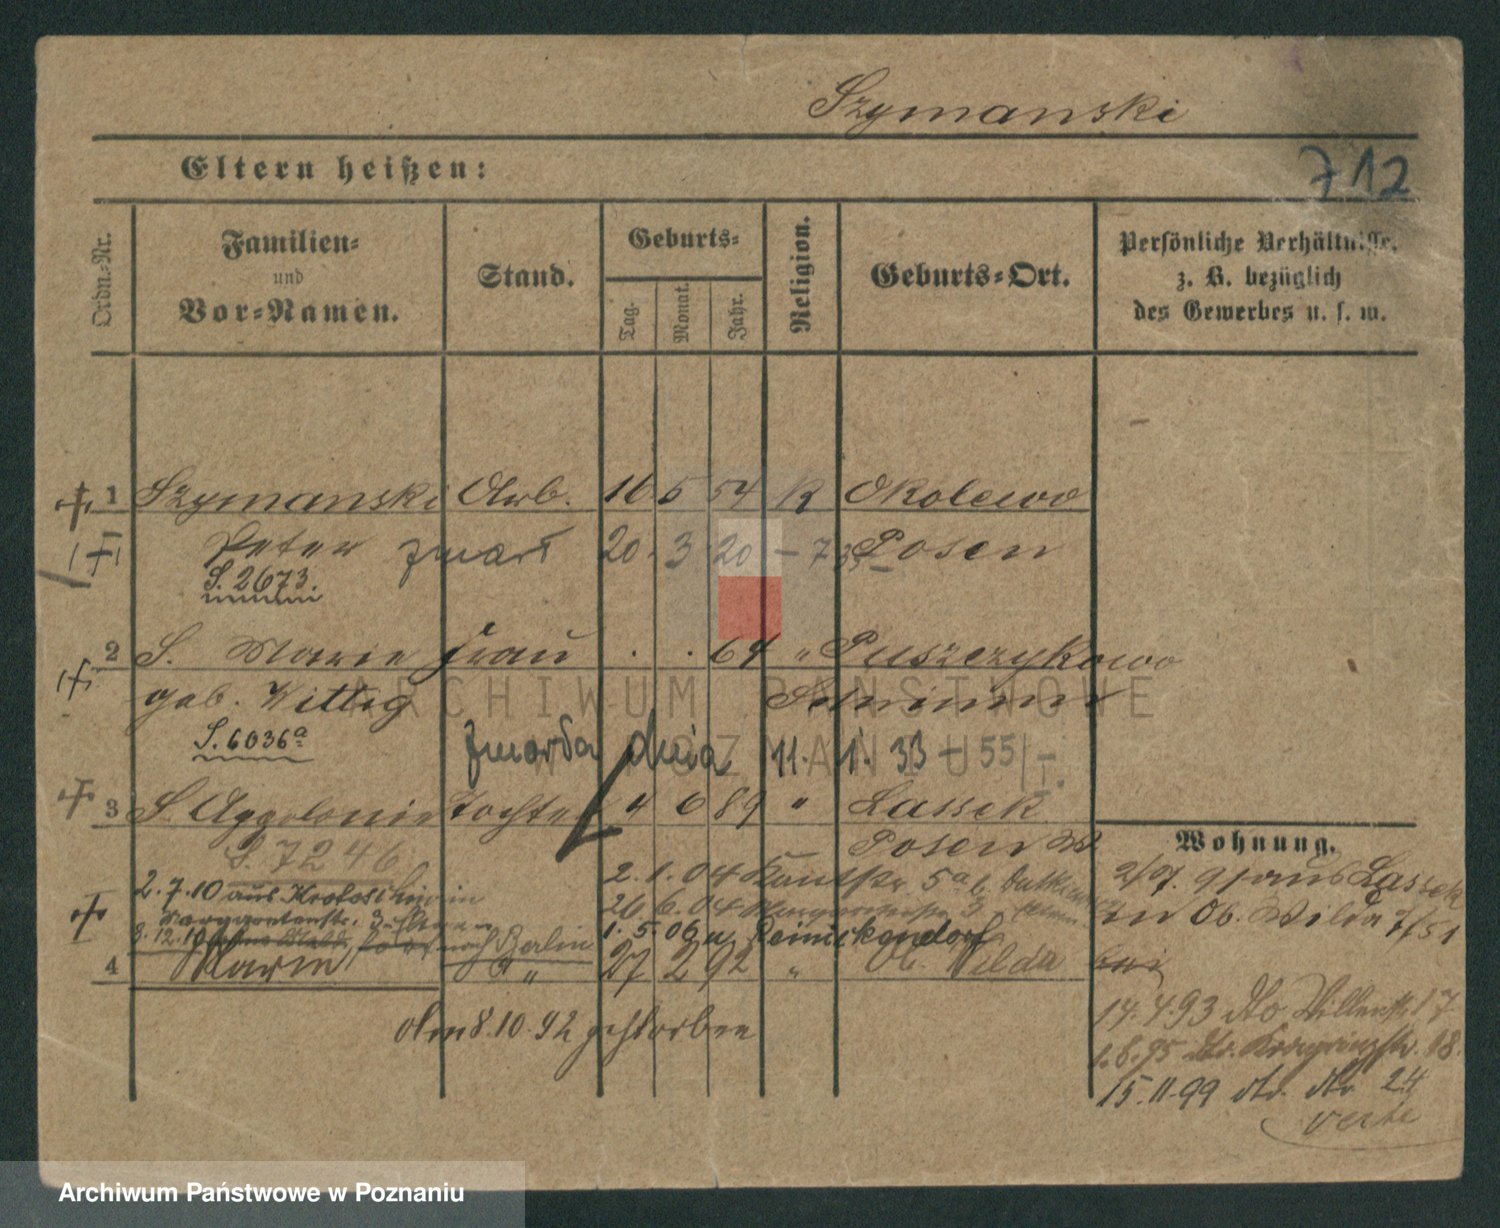 Szymanski
Eltern heißen:
712
Ordn.-Nr.
Familien-
und
Vor-Namen.
Stand.
Geburts-
Tag.
Monat.
Jahr.
Religion.
Geburts-Ort.
Persönliche Verhältnisse,
z. B. bezüglich
des Gewerbes u. s. w.
1 Szymanski Arb. 16 5 54 K Okolewo
Peter zmarł 20. 3. 20 - 73 Posen
S. 2673.
2 S. Marie Frau . . 64 " Puszczykowo
geb. Wittig Schrimm
S. 6036a zmarła dnia 11. 1. 33 - 55/I.
3 S. Appolonie Tochter 4 6 89 " Lassek
S. 7246 Posen W
Wohnung.
2.7.10 aus 2.1.04 5a
2/7. 91 aus Lassek
in Ob. Wilda 7/51
26 6.04 3
8.12.10 nach Berlin 1.5.06 n. Reinickendorf
4 Marie " 27 2 92 " Ob. Wilda bei
am 8.10.92 gestorben
14.4.93 dto 17
1.8.95 dto. 18.
15.11.99 dto. dto 24
verte
ARCHIWUM PAŃSTWOWE
W POZNANIU
Archiwum Państwowe w Poznaniu